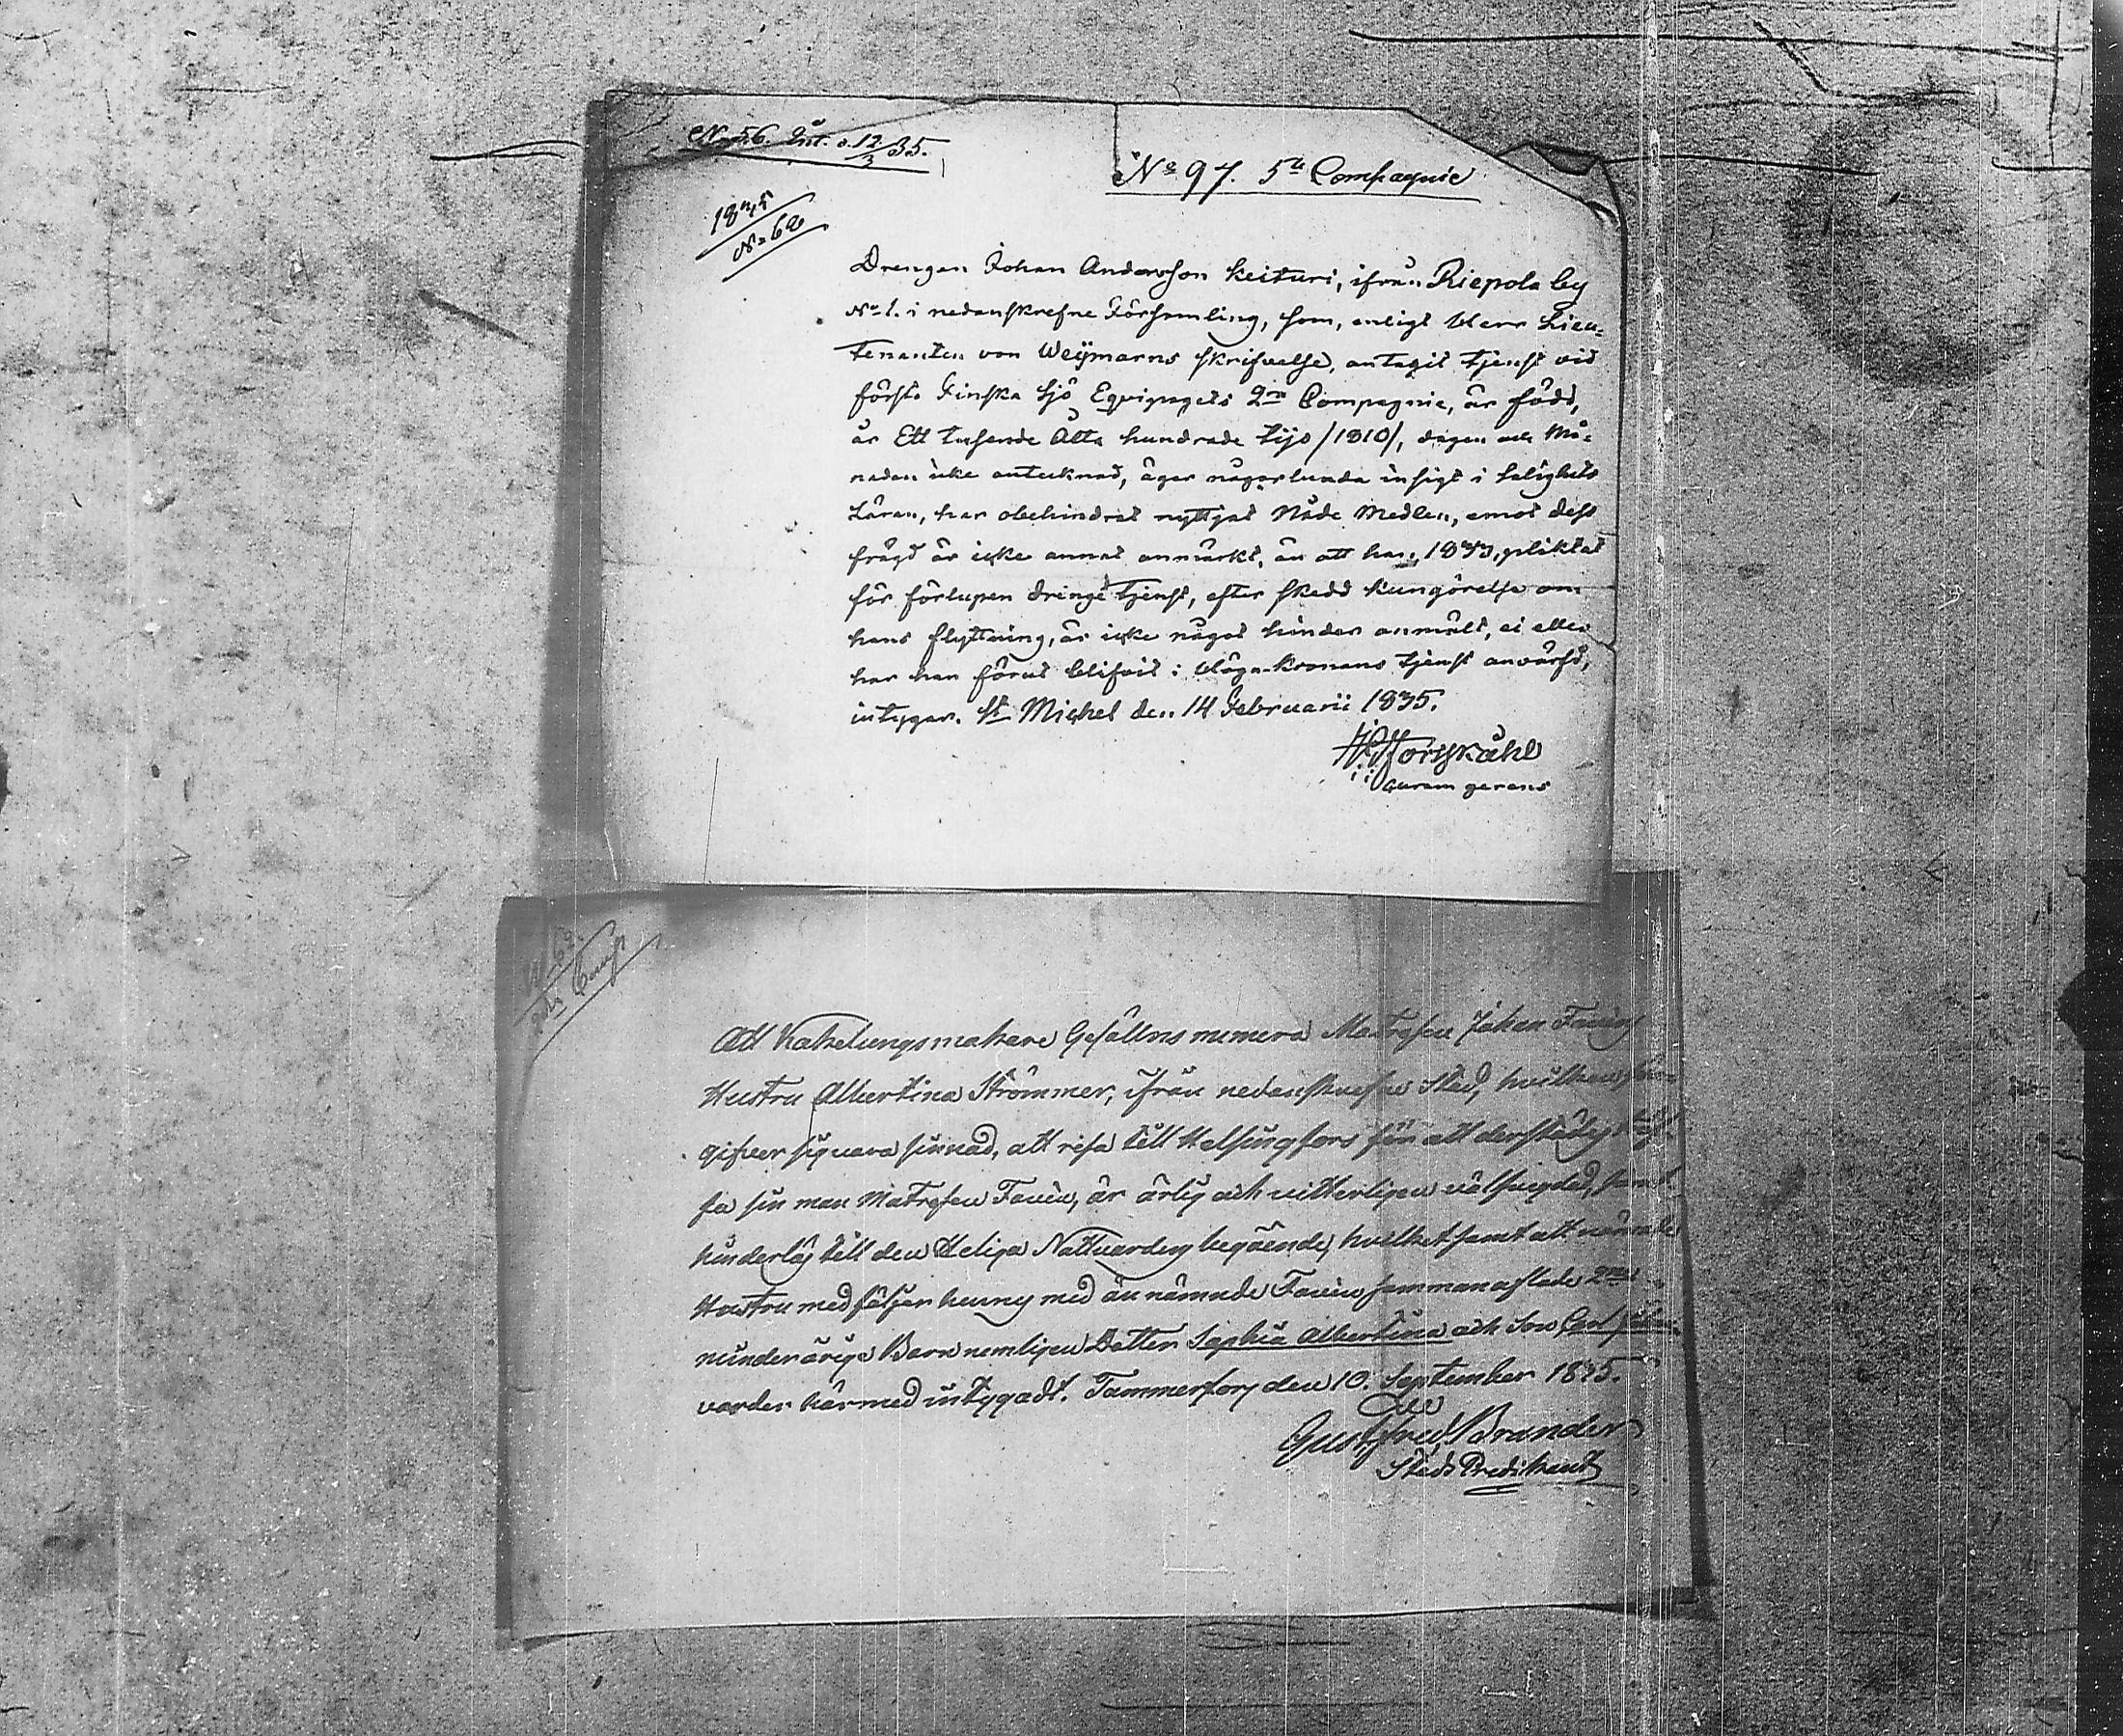 No 56. Int. d. 12/3 35.
No 97. 5te Compagnie
1835
No 62
Drengen Johan Andersson Keituri, ifrån Riepola by
No 1. i nedanskrefne Församling, som, enligt Herr Lieu-
tenanten von Weÿmarns skrifvelse, antagit tjenst vid
första Finska Sjö Equipagets 2ra Compagnie, är född,
år Ett tusende Åtta hundrade tijo /1810/, dagen och Må-
naden icke antecknad, äger någorlunda insigt i Salighets
Läran, har obehindrat nyttjat Nåde Medlen, emot dess
frägd är icke annat anmärkt, än att han, 1833, pliktat
för förlupen drengetjenst, efter skedd kungörelse om
hans flyttning, är icke något hinder anmält, ei eller
har han förut blifvit i Höga Kronans tjenst anvärfd,
intygar. St Michel den 14 Februarii 1835.
Forsskåhl
Curam gerens
No 62.
Comp
Att Kakelungsmakare Gesällns numera Matrosen Johan
Hustru Albertina Strömmer, ifrån nedanskrefne Stad, hvilken
gifver sig vara sinnad, att resa till Helsingfors för att derstädes
fa sin man Matrosen, är ärlig och vitterligen välfrägdad, samt
hinderlös till den Heliga Nattvardens begående, hvilket samt att nämnde
Hustru medföljer henne med än nämnde sammanaflade 2ne
minderårige Barn nemligen Dotter Sophia Albertina och Son Carl
varder härmed intygadt. Tammerfors den 10. September 1835.
Gust. Fred. Brander
Stads Predikant